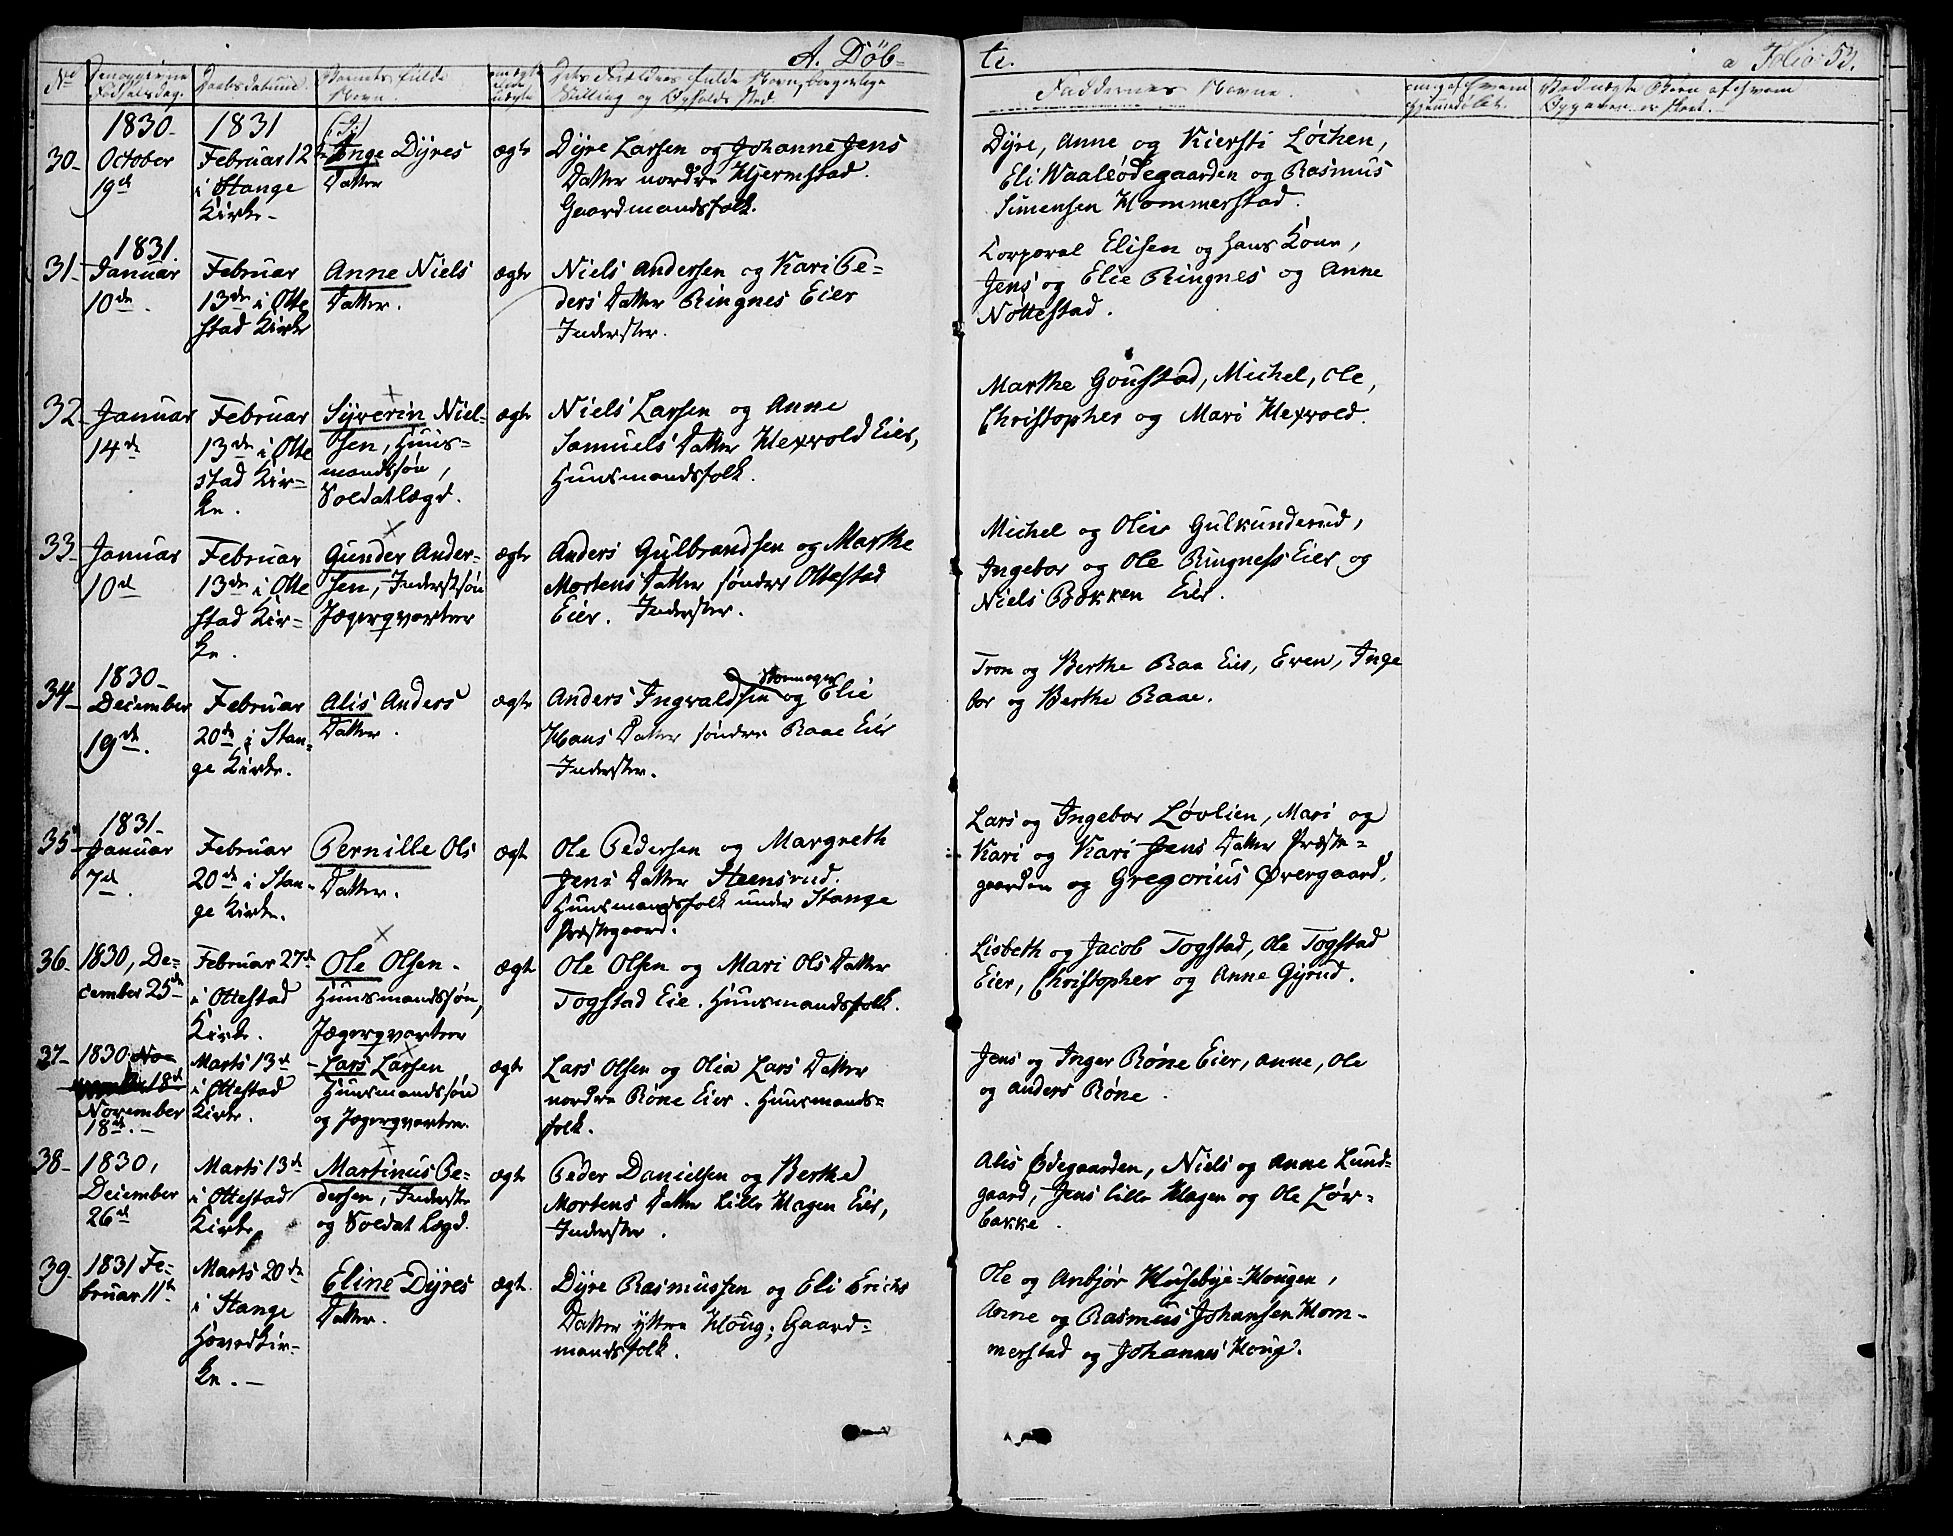 A. Døb-
te.
a Folio 53.
No
Fødselsdag.
Daabsdatum.
Barnets fulde
Navn.
Stilling og Opholds Sted
Faddernes Navne.
30-
1830-
October
19de
1831
Februar 12te
i Stange
Kirke-
Inge Dyres
Datter
ægte
Dyre Larsen og Johanne Jens
Datter nordre Hjermstad.
Gaardmandsfolk.
Dyre, Anne og Kiersti Løchen,
Eli Waaleødegaarden og Rasmus
Simensen Hommerstad.
31-
1831.
Januar
10de.
Februar
13de i Otte
stad Kirke
Anne Niels
Datter.
ægte
Niels Andersen og Kari Pe-
ders Datter Ringnes Eier
Inderster.
Corporal Elisen og Hans Koun,
Jens og Elie Ringnes og Anne
Nøttestad.
32-
Januar
14de
Februar
13de i Otte
stad Kir-
ke.
Syverin Niel-
sen, Huus-
mandssøn,
Soldatlægd.
ægte
Niels Larsen og Anne
Samuels Datter Hexvold Eier,
Huusmandsfolk.
Marthe Goustad, Michel, Ole,
Christopher og Mari Hexvold.
33-
Januar
10de
Februar
13de i Otte
stad Kir-
ke.
Gunder Ander-
sen, Inderstsøn
Jægerqvarteer
ægte
Anders Gulbrandsen og Marthe
Mortens Datter søndre Ottestad
Eier. Inderster.
Michel og Olia Gulkunderud,
Ingebor og Ole Ringness Eier og
Niels Bakken Eier.
34-
1830-
December
19de.
Februar
20de i Stan-
ge Kirke.
Alis Anders
Datter.
ægte
Anders Ingvaldsen og Elie
Hans Datter søndre Raae Eier
Inderster.
Tron og Berthe Raa Eier, Even, Inge
bor og Berthe Raae.
35-
1831-
Januar
7de.
Februar
20de i Stan-
ge Kirke.
Pernille Ols
Datter.
ægte
Ole Pedersen og Margreth
Jens Datter Steensrud.
Huusmandsfolk under Stange
Præstegaard.
Lars og Ingebor Løvlien, Mari og
Kari og Kari Jens Datter Præste-
gaarden og Gregorius Øvergaard.
36-
1830, De-
cember 25de
Februar 27de
i Ottestad
Kirke.
Ole Olsen.
Huusmandssøn,
Jægerqvarteer
ægte
Ole Olsen og Mari Ols Datter
Togstad Eie. Huusmandsfolk.
Lisbeth og Jacob Togstad, Ole Togstad
Eier, Christopher og Anne Gyrud.
37-
1830
November
18de.-
Marts 13de
i Ottestad
Kirke.
Lars Larsen
Huusmandssøn
og Jægerqvarteer.
ægte
Lars Olsen og Olia Lars Datter
nordre Røne Eier. Huusmands-
folk.
Jens og Inger Røne Eier, Anne, Ole
og Anders Røne.
38-
1830,
December
26de
Marts 13de
i Ottestad
Kirke
Martinus Pe-
dersen, Inderste
og Soldat Lægd.
ægte
Peder Danielsen og Berthe
Mortens Datter Lille Hagen Eier,
Inderster.
Alis Ødegaarden, Niels og Anne Lund-
gaard, Jens Lille Hagen og Ole Lør-
bakke.
39-
1831 Fe-
bruar 11te
Marts 20de
i Stange
Hovedkir-
ke.-
Eline Dyres
Datter.
ægte.
Dyre Rasmussen og Eli Erichs
Datter yttre Houg; Gaard-
mandsfolk.
Ole og Anbjør Husebye-Hougen,
Anne og Rasmus Johansen Hom-
merstad og Johannes Houg.